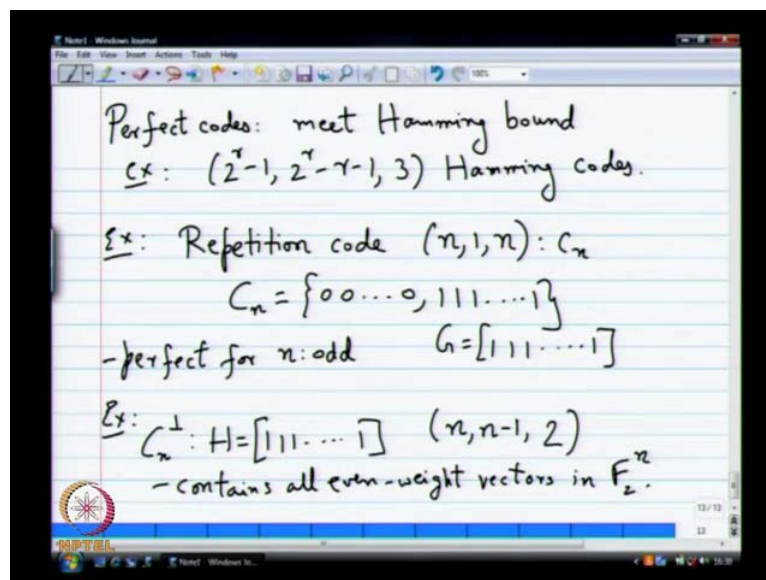 Note1 - Windows Journal
File Edit View Insert Actions Tools Help
100%
Perfect codes: meet Hamming bound
Ex: (2^r-1, 2^r-r-1, 3) Hamming codes.
Ex: Repetition code (n,1,n): C_n
C_n = {00...0, 111....1}
-perfect for n:odd G=[111.....1]
Ex: C_n^⊥: H=[111....1] (n,n-1,2)
-contains all even-weight vectors in F_2^n.
13/13
13
NPTEL
Note1 - Windows Jo...
16:30